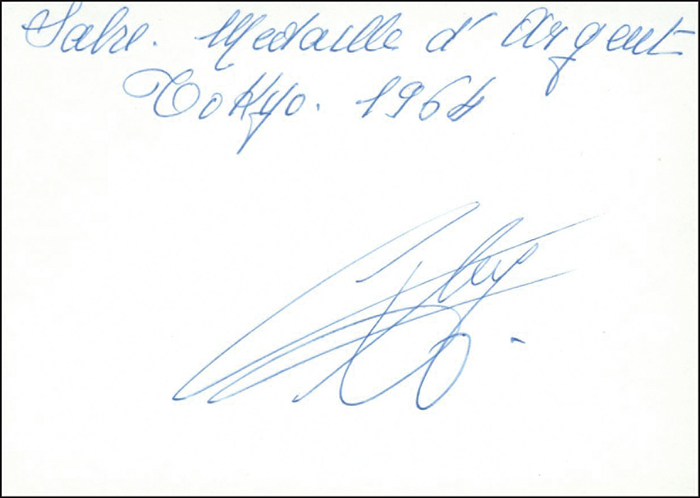 Sabre. Medaille d' Argent
Tokyo. 1964